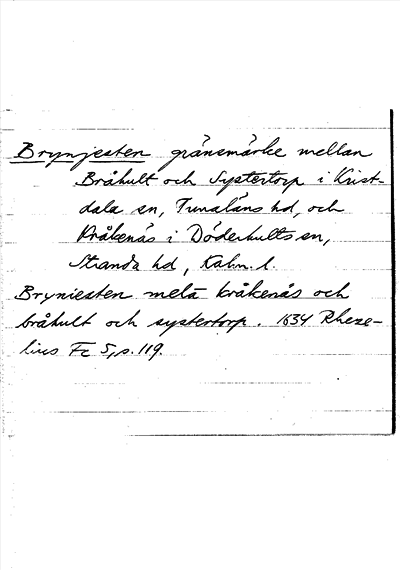 Brynjesten gränsmärke mellan
Bråhult och Systertorp i Krist-
dala sn, Tunaläns hd, och
Kråkenäs i Döderhults sn,
Stranda hd, Kalm. l.
Bryniesten melä kråkenäs och
bråhult och systertorp. 1634 Rheze-
lius Fc 5, s. 119.